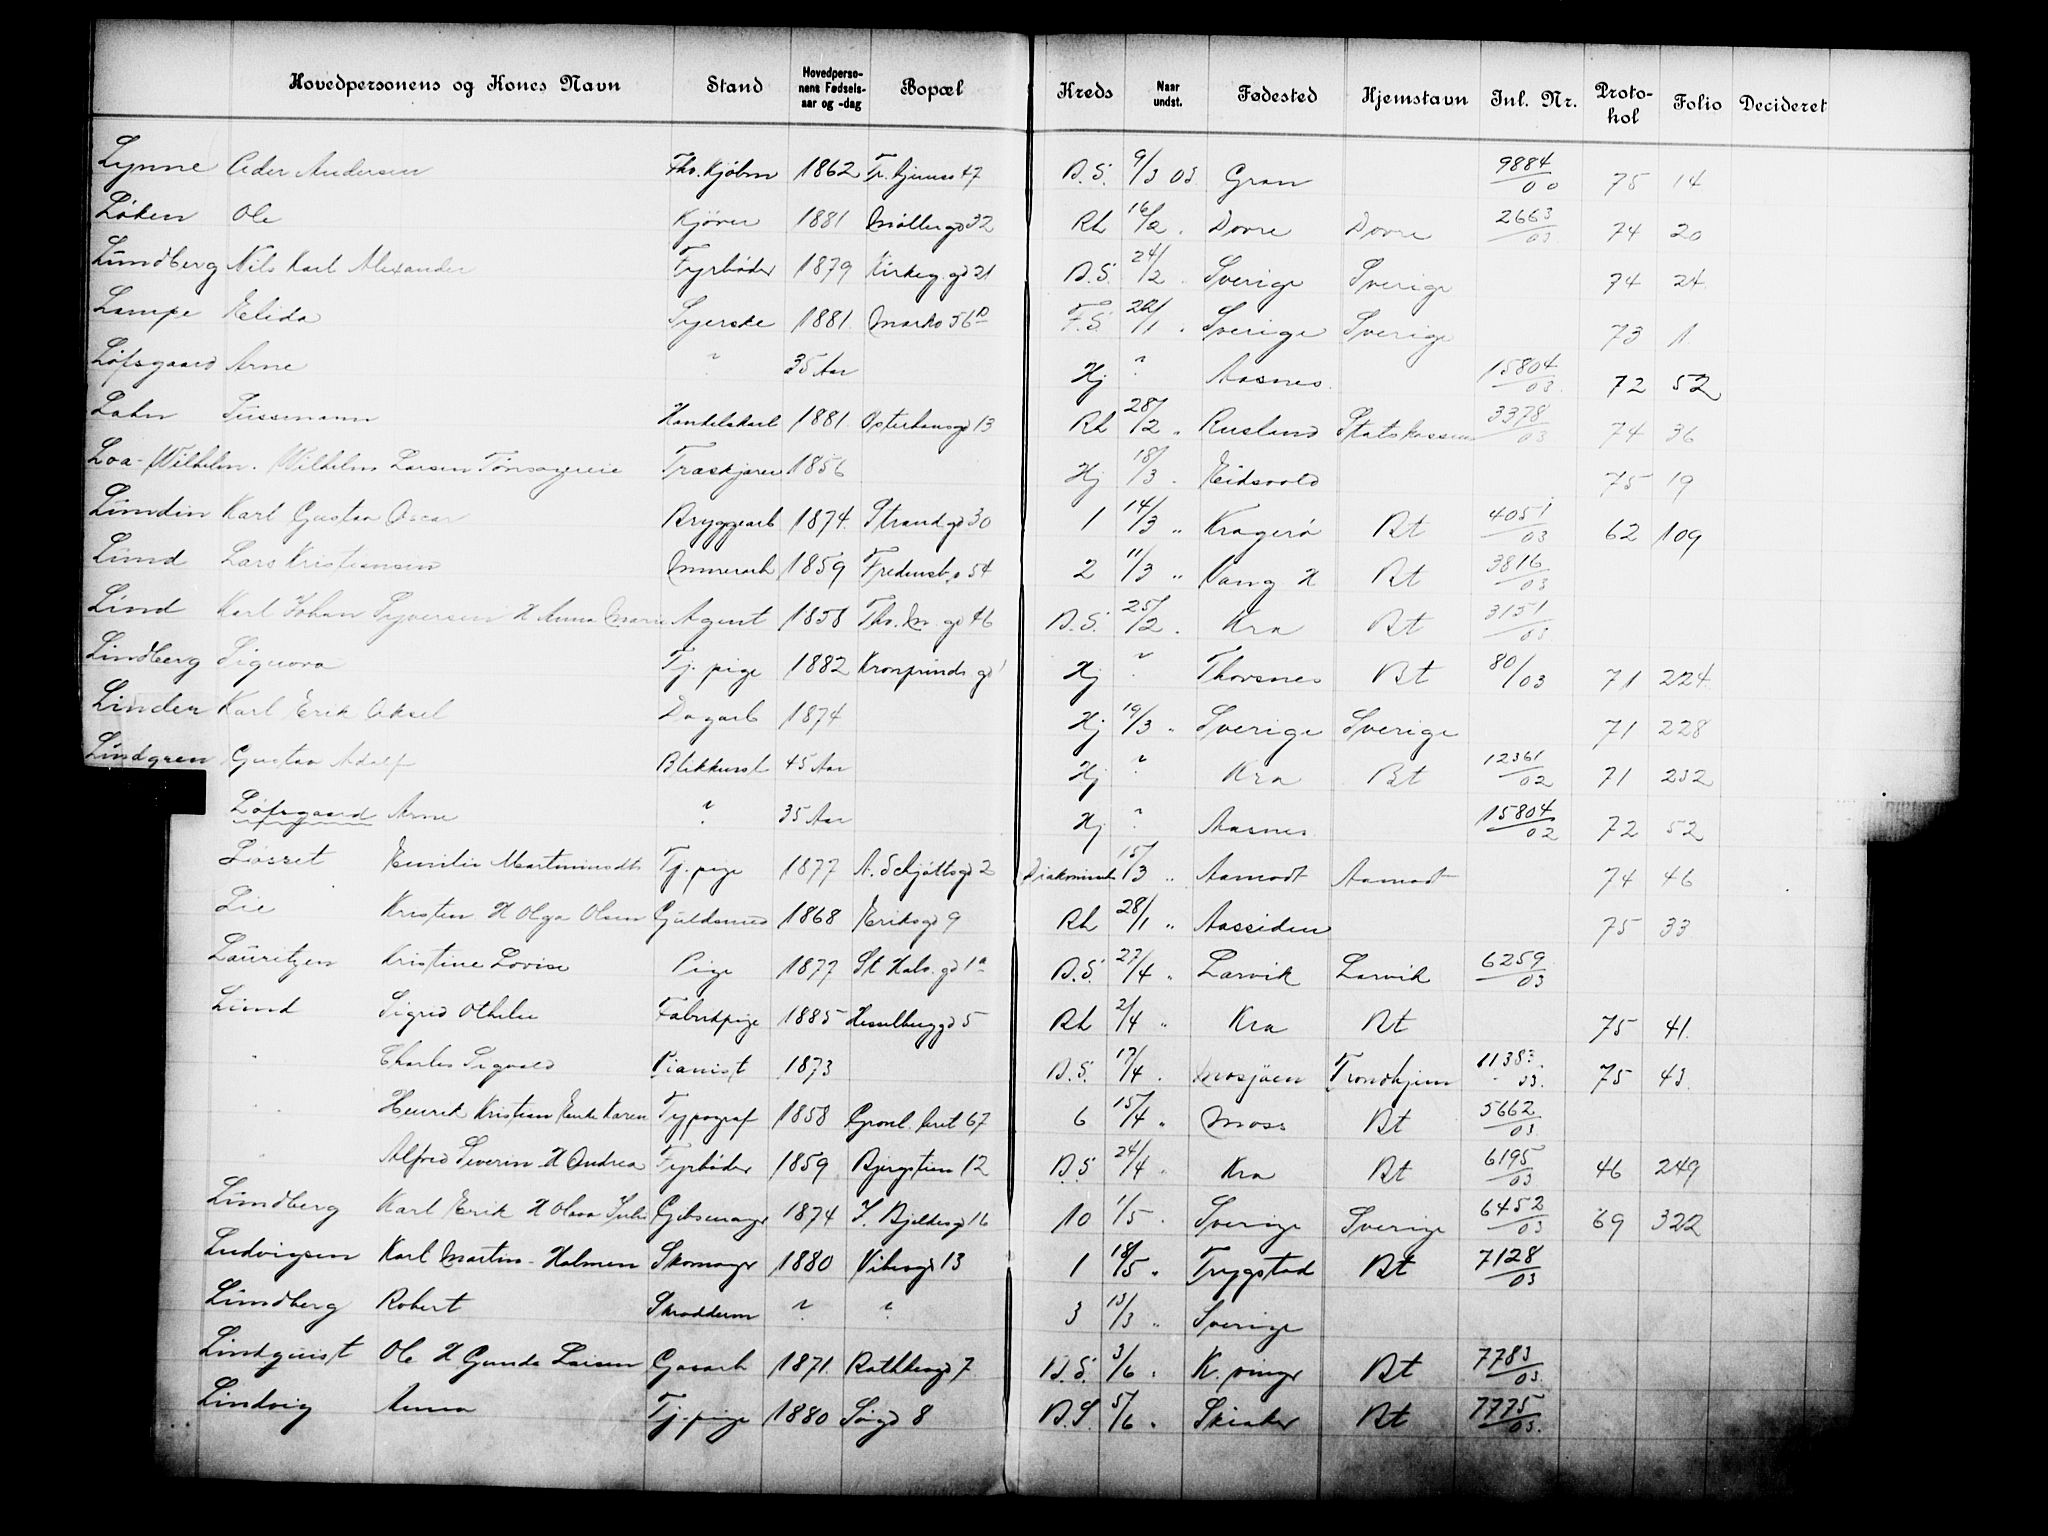 Hovedpersonens og Kones Navn Stand Hovedperso-nens Fødsels-aar og -dag Bopæl Kreds Naar undst. Fødested Hjemstavn Inl. Nr. Proto-kol Folio Decideret
Lynne Peder Andersen 1862 47 B.S. 9/3 03 Gran 9884/00 75 14
Løken Ole Kjører 1881 Møllergd 32 Rh 16/2 Dovre Dovre 2663/03 74 20
Lundberg Nils Karl Alexander Fyrbøder 1879 Kirkeg. gd 21 B.S. 24/2 Sverige Sverige 74 24
Lampe Elida Syerske 1881 F.S. Sverige Sverige 73 1
Løfsgaard Arne " 35 Aar Hj " Aasnes 15804/03 72 52
Lahn Handelskarl 1881 Osterhausgd 13 Rh 28/2 " Rusland Statskassen 3378/03 74 36
Loa-Wilhelm. Wilhelm Larsen 1856 Hj 18/3 Eidsvold 75 19
Lundin Karl Gustav Oscar Bryggearb 1874 Strandgd 30 1 14/3 " Kragerø Bt 4051/03 62 109
Lund Lars Kristiansen Murerarb 1859 Fredensb. 54 2 11/3 " Vang H Bt 3816/03
Lind Karl Johan Syversen H Anna Marie Agent 1858 Th. M. gd 46 B.S. 25/2 Kra Bt 3151/03
Lindberg Signora Tj. pige 1882 Kronprinds gd 1 Hj " Thorsnes Bt 80/03 71 224
Linder Karl Erik Aksel Dagarb 1874 Hj 19/3 " Sverige Sverige 71 228
Lindgren Gustav Adolf Blikkensl 45 Aar Hj " Kra Bt 12361/02 71 232
Løfsgaard Arne " 35 Aar Hj " Aasnes 15804/02 72 52
Løsset Emilie Martinusdt Tj. pige 1877 A. Schjøttsgd 2 15/3 " Aamodt Aamodt 74 46
Lie Kristen H Olga Olsen Guldsmed 1868 Eriksgd 9 Rh 28/1 " Aassiden 75 33
Lauritzen Kristine Lovise Pige 1877 St Halv. gd 1a B.S. 27/4 " Larvik Larvik 6259/03
Lund Sigrid Othelie Fabrikpige 1885 Hesselberggd 5 Rh 2/4 " Kra Bt 75 41
" Charles Sigvald Pianist 1873 B.S. 17/4 Mosjøen Trondhjem 11383/03 75 43
" Henrik Kristian Enke Karen Typograf 1858 Grønl. 67 6 15/4 " Moss Bt 5662/03
" Alfred Severin H Andrea Fyrbøder 1859 Bjergstien 12 B.S. 24/4 " Kra Bt 6195/03 46 249
Lundberg Karl Erik H Gibsmager 1874 J. Bjelkesgd 16 10 1/5 Sverige Sverige 6452/03 69 322
Ludvigsen Karl Martin Halmen Skomager 1880 Vibesgd 13 1 18/5 " Trygstad Bt 7128/03
Lundberg Robert Skræddersv " " 3 13/3 " Sverige
Lindquist Ole H Gunda Larsen Gasarb 1871 Rathkesgd 7 B.S. 3/6 " K. vinger Bt 7783/03
Lindvig Anna Tj. pige 1880 8 B.S 5/6 " Skiaker Bt 7775/03